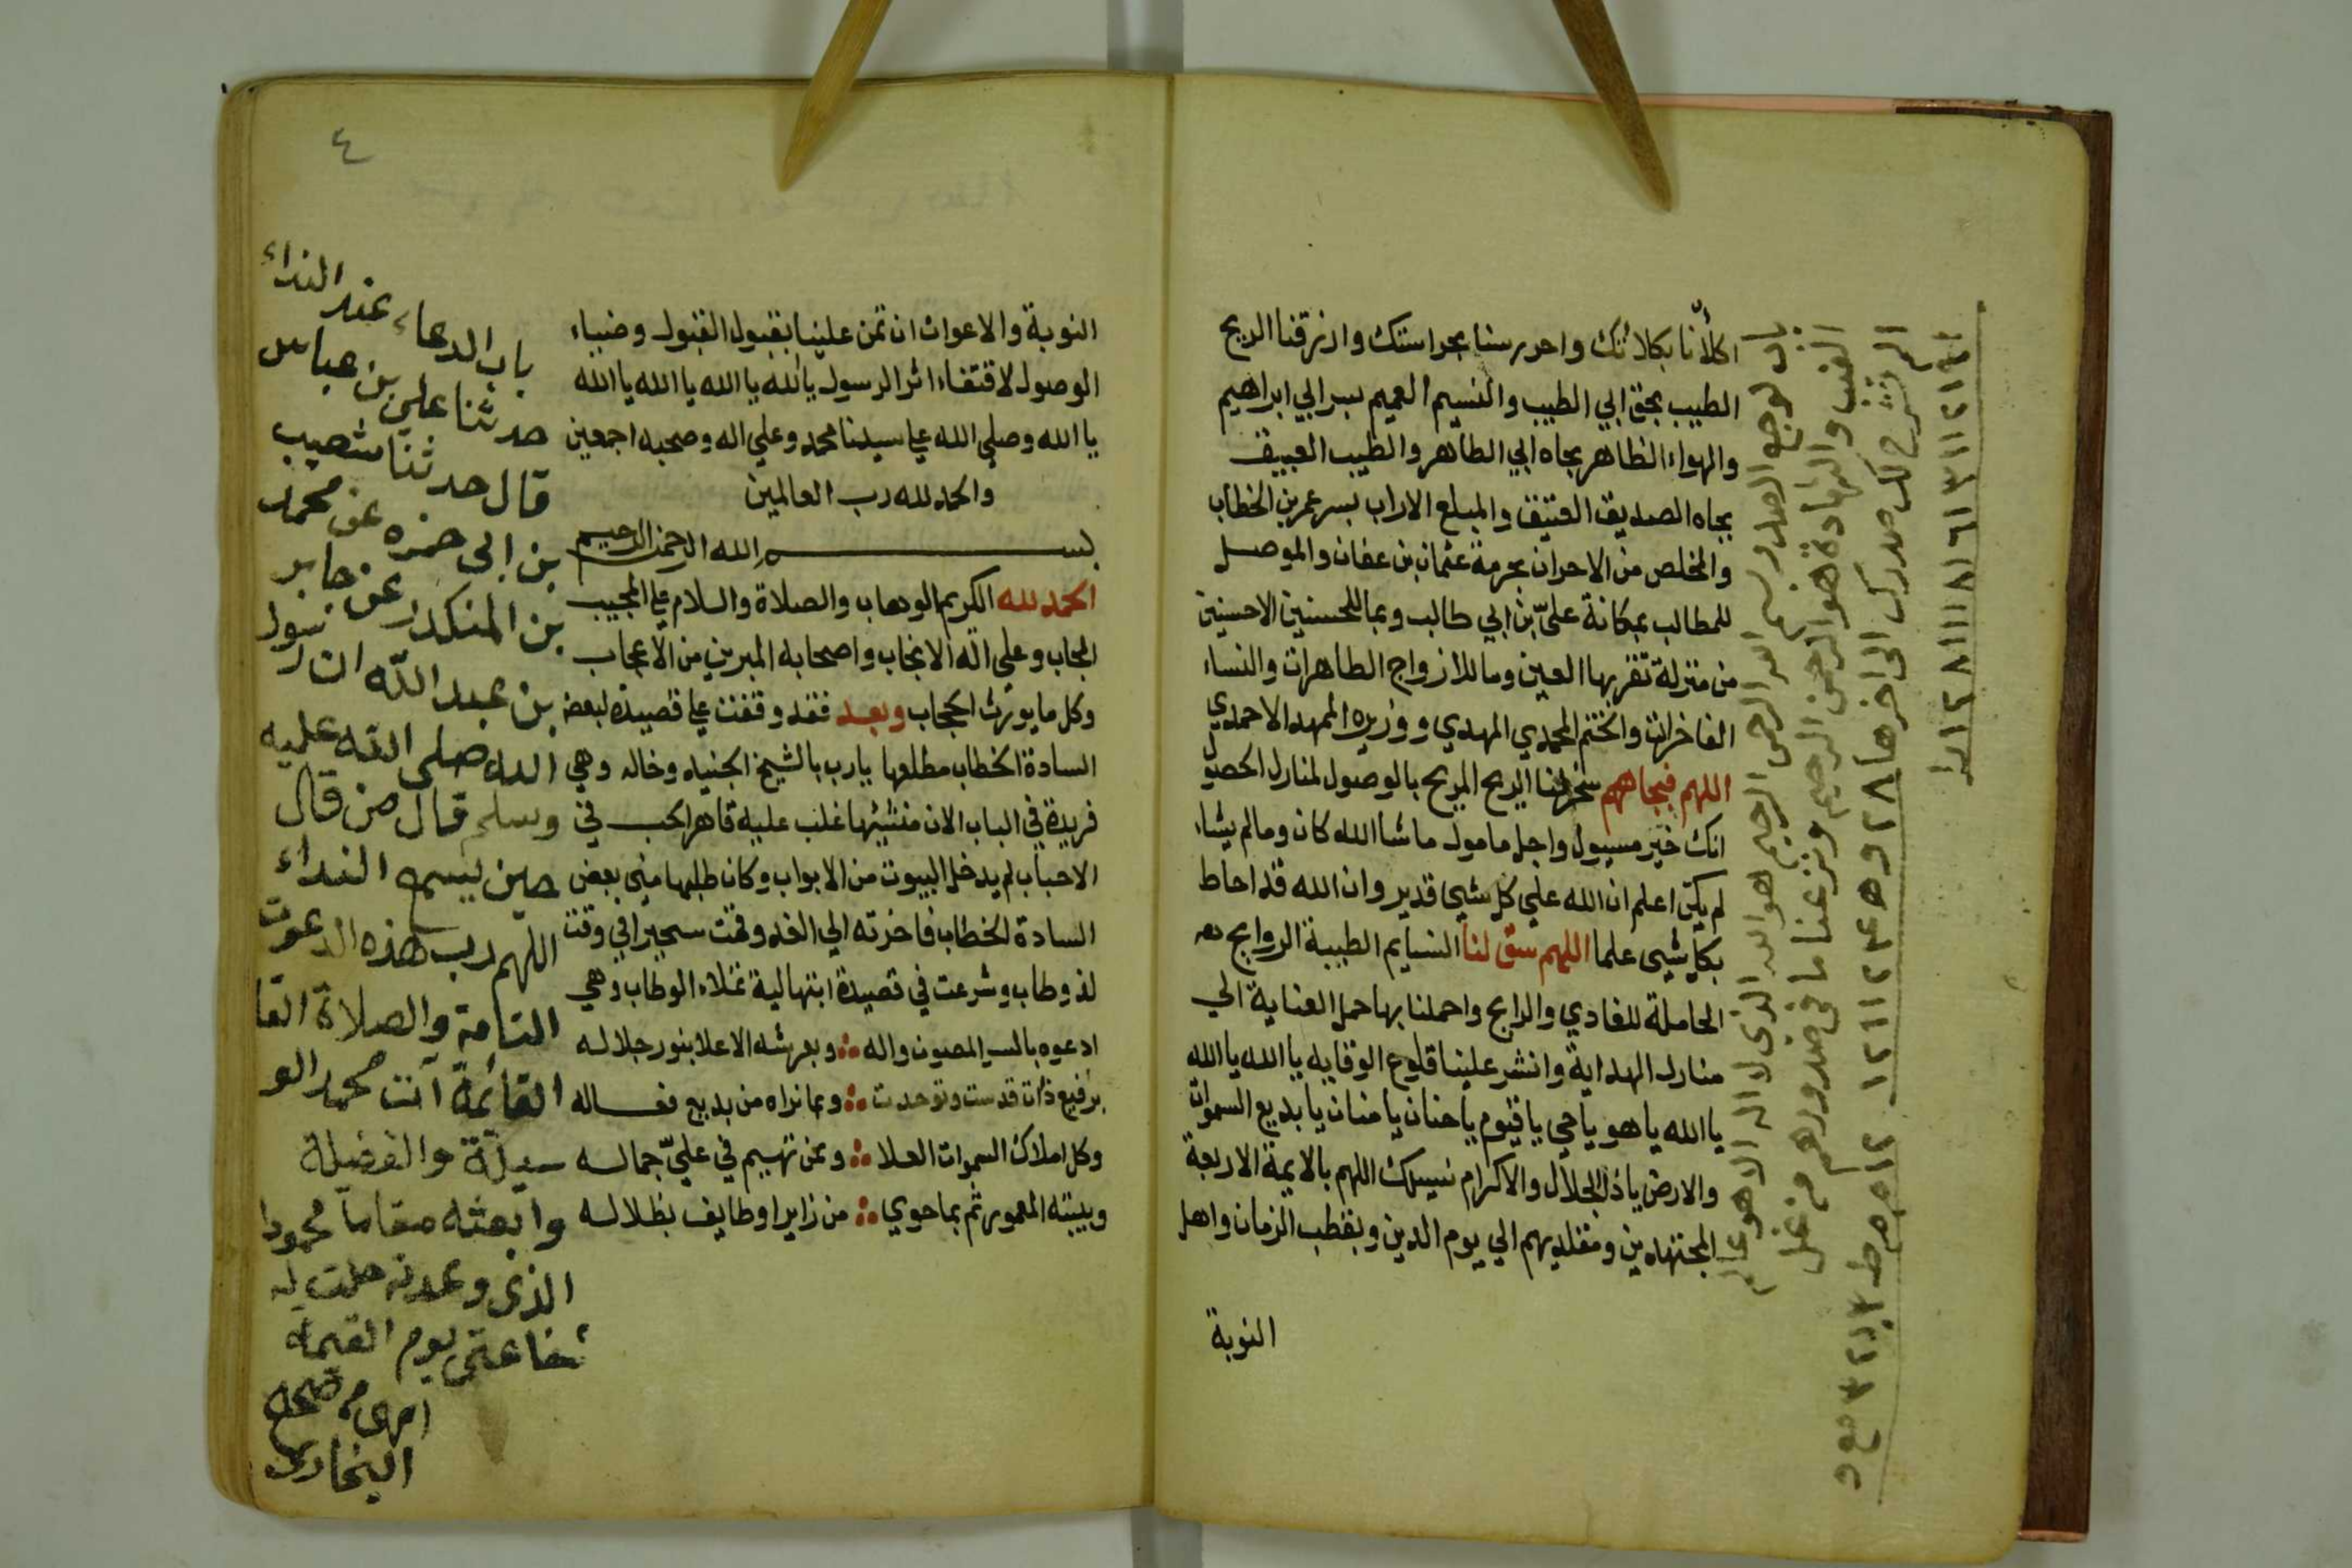 اكلأنا بكلائك واحرسنا بحراستك وارزقنا الريح
الطيب بحق ابي الطيب والنسيم العميم بسر ابي ابراهيم
والهواء الظاهر بجاه ابي الطاهر والطيب العبيق
بجاه الصديق العتيق والمبلغ الاراب بسر عمر بن الخطاب
والمخلص من الاحزان بحرمة عثمان بن عفان والموصل
للمطالب بمكانة علي بن ابي طالب وبما للحسنين الاحسنين
من منزلة تقر بها العين وما للازواج الطاهرات والنساء
الفاخرات والختم المحمدي المهدي ووزيره الممهد الاحمدي
اللهم فبجاههم سخر لنا الريح المريح بالوصول لمنازل الحصول
انك خير مسيول واجل مامول ماشا الله كان ومالم يشاء
لم يكن اعلم ان الله علي كل شيي قدير وان الله قد احاط
بكل شيي علما اللهم سق لنا النسايم الطيبة الروايح
الحاملة للغادي والرايح واحملنا بها حمل العناية الي
منازل الهداية وانشر علينا قلوع الوقايه يا الله يا الله
يا الله يا هو يا حي يا قيوم يا حنان يا منان يا بديع السموات
والارض يا ذا الجلال والاكرام نسيلك اللهم بالايمة الاربعة
المجتهدين ومقلديهم الي يوم الدين وبقطب الزمان واهل
النوبة
باب لوجع الصدر بسم الله الرحمن الرحيم هو الله الذي لا اله الا هو عالم
الغيب والشهادة هو الرحمن الرحيم ونزعنا ما في صدورهم من غل
الم نشرح لك صدرك الى اخرها
٤
النوبة والاعوات ان تمن علينا بقبول القبول وضياء
الوصول لاقتفاء اثر الرسول يا الله يا الله يا الله يا الله
يا الله وصلي الله علي سيدنا محمد وعلي اله وصحبه اجمعين
والحمد لله رب العالمين
بسم الله الرحمن الرحيم
الحمد لله الكريم الوهاب والصلاة والسلام علي المجيب
المجاب وعلي اله الانجاب واصحابه المبرين من الاعجاب
وكل ما يورث الحجاب وبعد فقد وقفت علي قصيدة لبعض
السادة الخطاب مطلعها يارب بالشيخ الجنيد وخاله وهي
فريدة في الباب الان منشيها غلب عليه قاهر الحب في
الاحباب لم يدخل البيوت من الابواب وكان طلبها مني بعض
السادة الخطاب فاخرته الي الغد وقمت سحيرا في وقت
لذ وطاب وشرعت في قصيدة ابتهالية تملاء الوطاب وهي
ادعوه بالسر المصون واله وبعرشه الاعلا بنور جلاله
برفيع ذات قدست وتوحدت وبما نراه من بديع فعاله
وكل املاك السموات العلا وبمن تهيم في علي جماله
وبيته المعمور ثم بما حوي من زاير او طايف بظلاله
باب الدعاء عند النداء
حدثنا علي بن عباس
قال حدثنا شعيب
بن ابى حمزه عن محمد
بن المنكدر عن جابر
بن عبد الله ان رسول
الله صلى الله عليه
وسلم قال من قال
حين يسمع النداء
اللهم رب هذه الدعوت
التامة والصلاة القا
القائمة آنت محمد الو
سيلة والفضيلة
وابعثه مقاما محمودا
الذى وعدته حلت له
شفاعتى يوم القيمه
البخارى